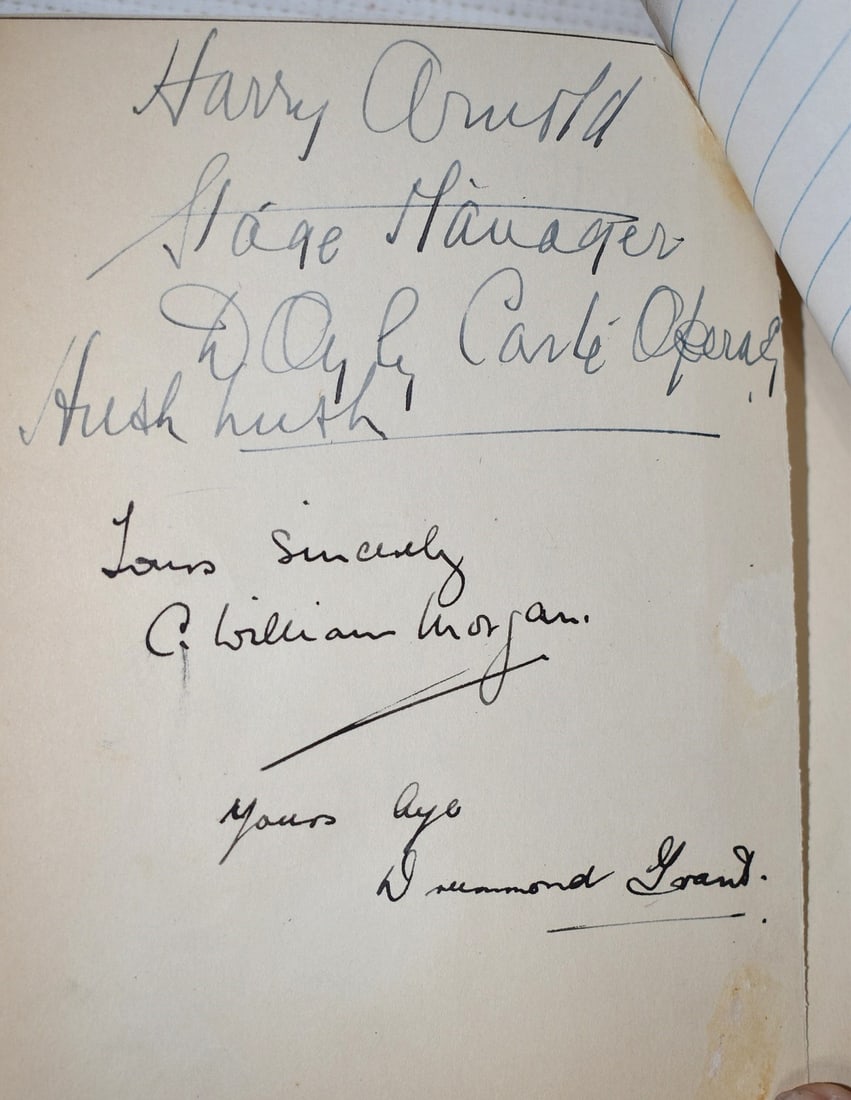 Harry Arnold
Stage Manager
D'Oyly Carte Operas
Hush hush
Yours Sincerely
C. William Morgan.
Yours Aye
Drummond Grant.